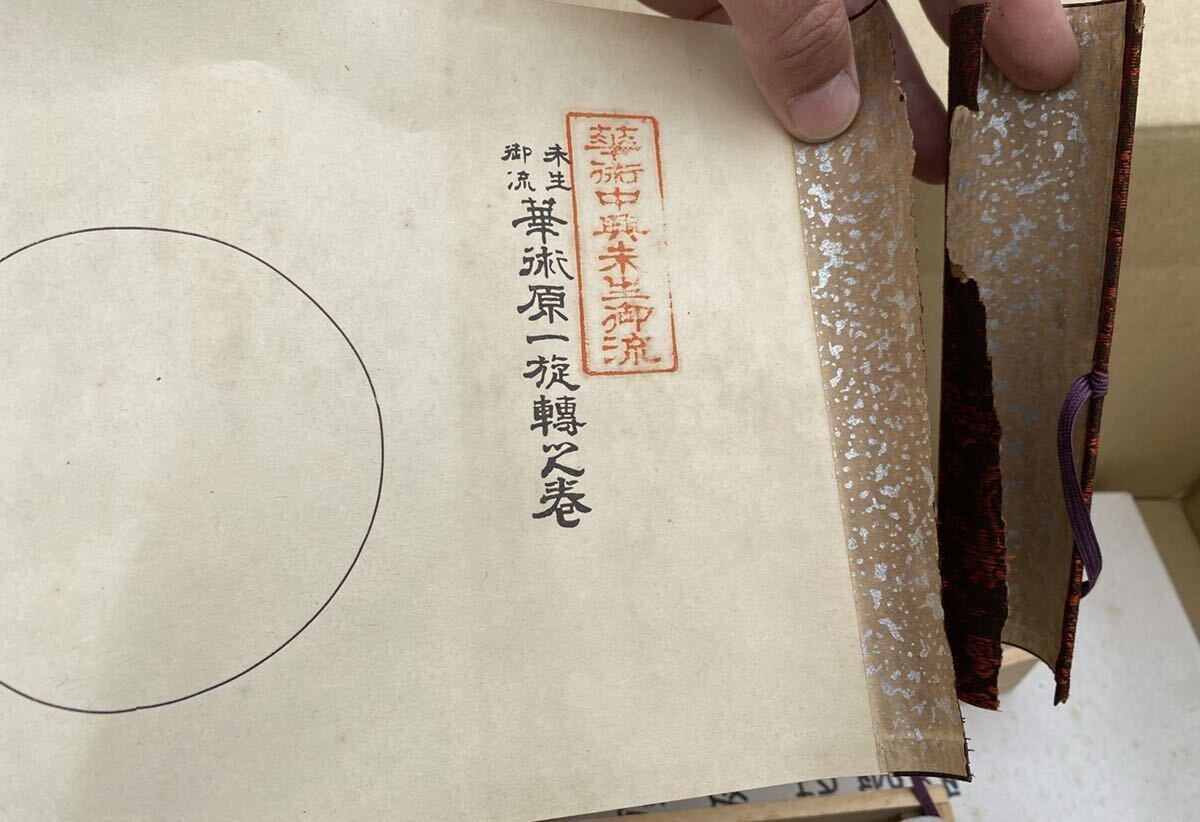 華術中興未生御流
未生
御流
華術原一旋轉之卷